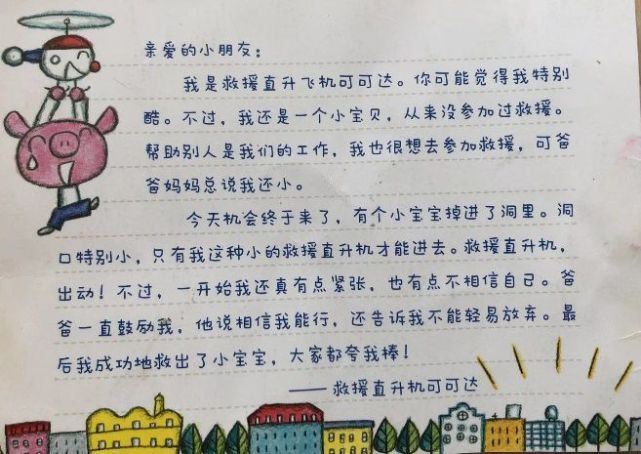 亲爱的小朋友：
我是救援直升飞机可可达。你可能觉得我特别
酷。不过，我还是一个小宝贝，从来没参加过救援。
帮助别人是我们的工作，我也很想去参加救援，可爸
爸妈妈总说我还小。
今天机会终于来了，有个小宝宝掉进了洞里。洞
口特别小，只有我这种小的救援直升机才能进去。救援直升机，
出动！不过，一开始我还真有点紧张，也有点不相信自己。爸
爸一直鼓励我，他说相信我能行，还告诉我不能轻易放弃。最
后我成功地救出了小宝宝，大家都夸我棒！
——救援直升机可可达